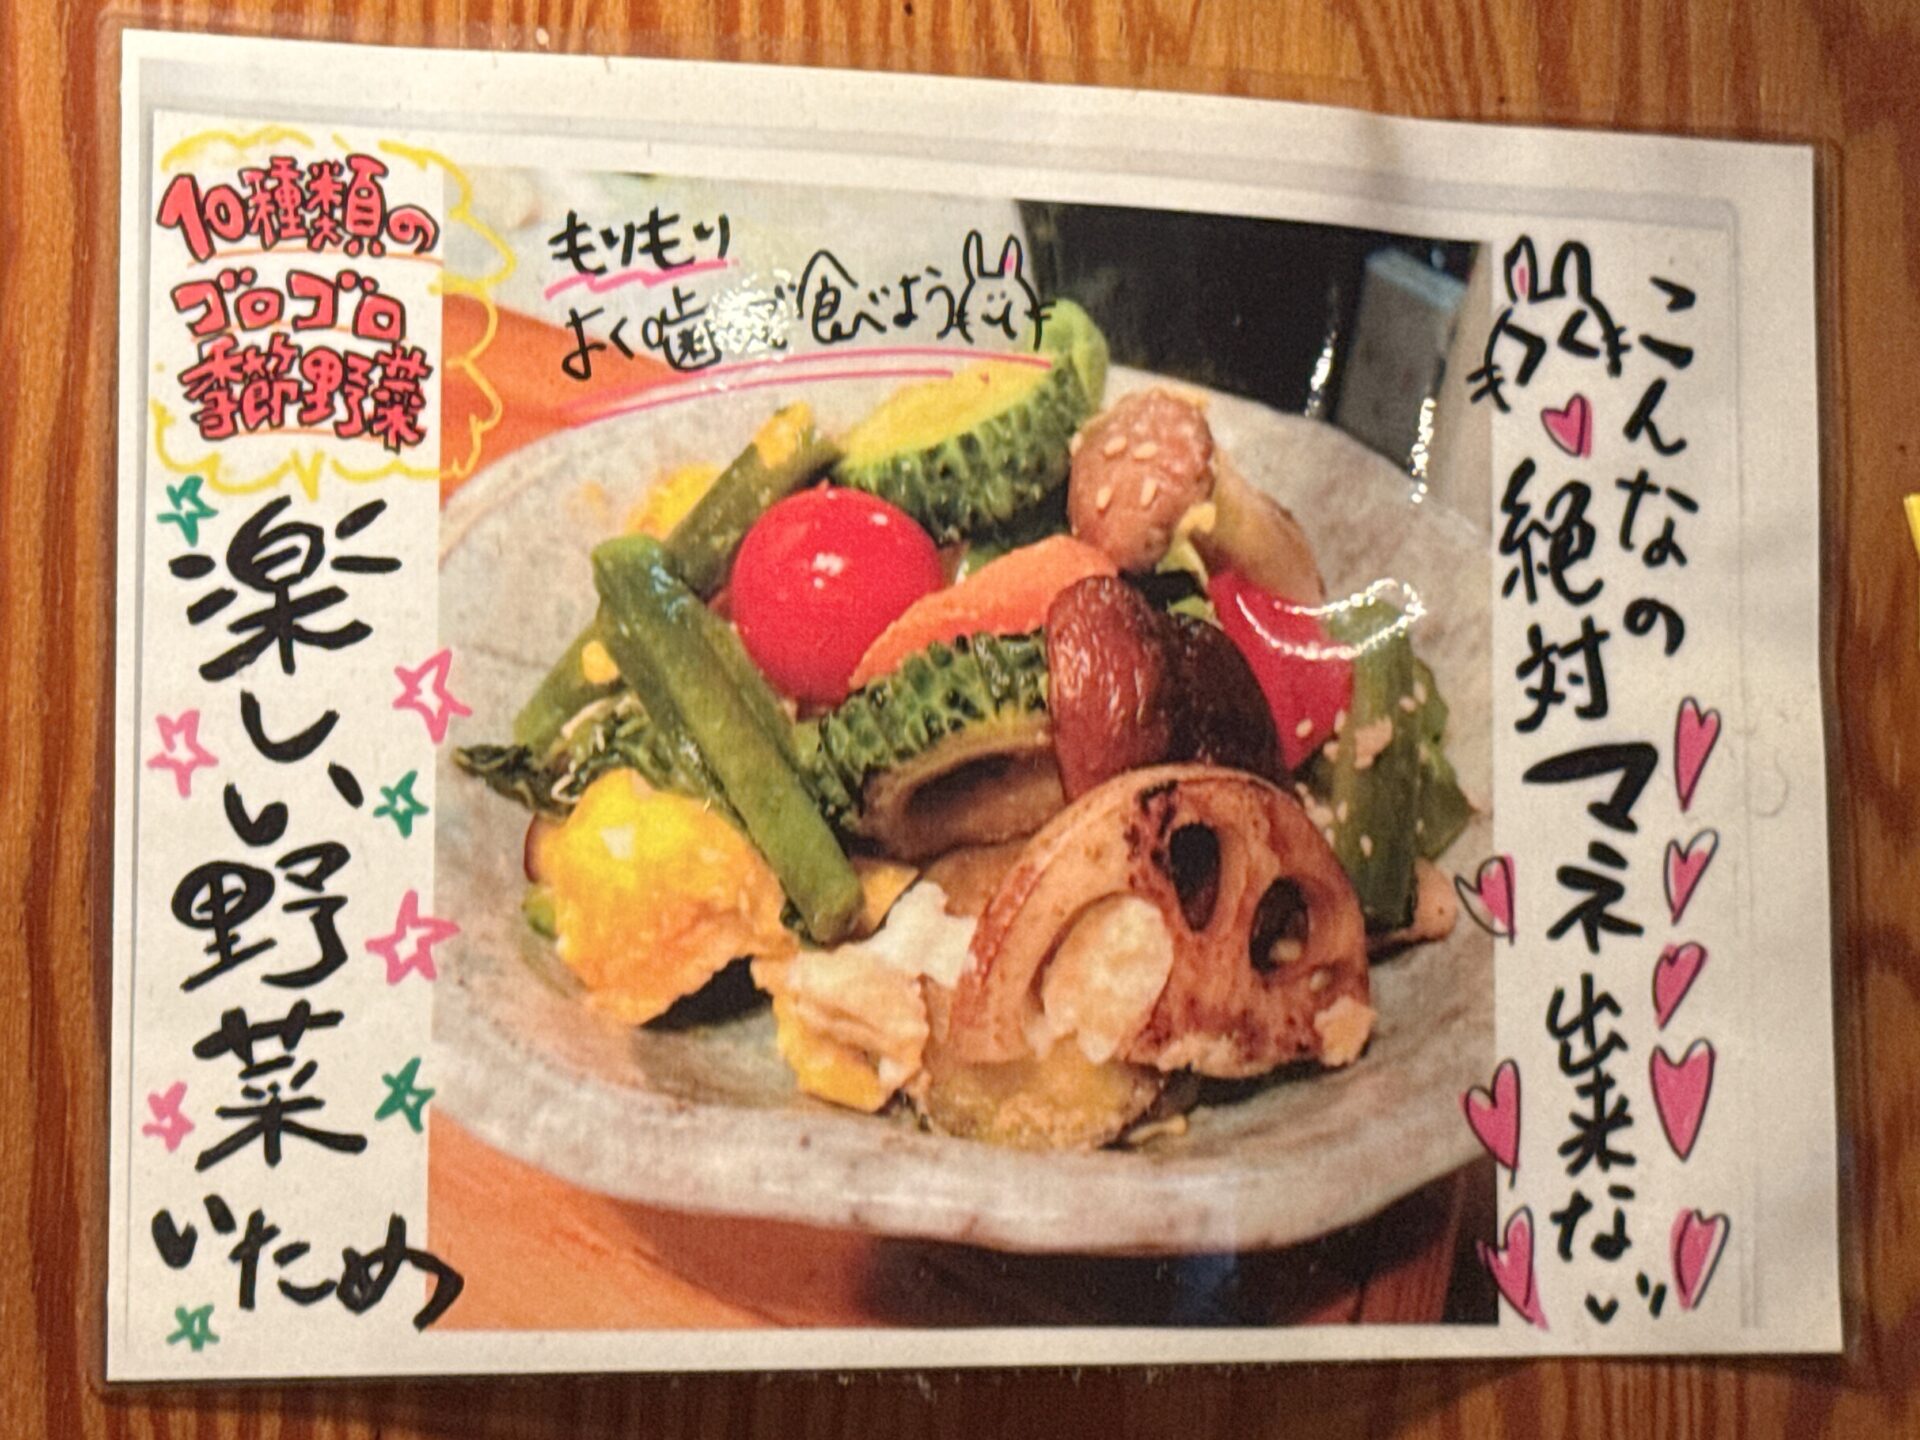 10種類の
ゴロゴロ
季節野菜
楽しい野菜
いため
もりもり
よく噛んで食べよう
こんなの
絶対マネ出来ない